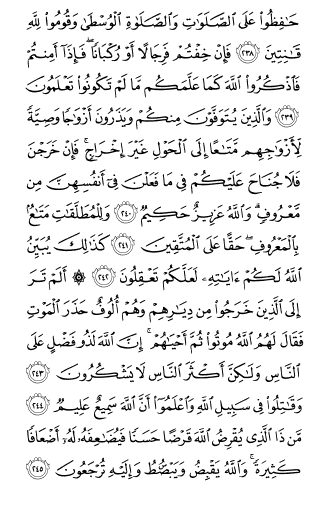 حَـٰفِظُوا۟ عَلَى ٱلصَّلَوَٰتِ وَٱلصَّلَوٰةِ ٱلْوُسْطَىٰ وَقُومُوا۟ لِلَّهِ
قَـٰنِتِينَ ﴿٢٣٨﴾ فَإِنْ خِفْتُمْ فَرِجَالًا أَوْ رُكْبَانًا ۖ فَإِذَآ أَمِنتُمْ
فَٱذْكُرُوا۟ ٱللَّهَ كَمَا عَلَّمَكُم مَّا لَمْ تَكُونُوا۟ تَعْلَمُونَ
﴿٢٣٩﴾ وَٱلَّذِينَ يُتَوَفَّوْنَ مِنكُمْ وَيَذَرُونَ أَزْوَٰجًا وَصِيَّةً
لِّأَزْوَٰجِهِم مَّتَـٰعًا إِلَى ٱلْحَوْلِ غَيْرَ إِخْرَاجٍ ۚ فَإِنْ خَرَجْنَ
فَلَا جُنَاحَ عَلَيْكُمْ فِى مَا فَعَلْنَ فِىٓ أَنفُسِهِنَّ مِن
مَّعْرُوفٍ ۗ وَٱللَّهُ عَزِيزٌ حَكِيمٌ ﴿٢٤٠﴾ وَلِلْمُطَلَّقَـٰتِ مَتَـٰعٌۢ
بِٱلْمَعْرُوفِ ۖ حَقًّا عَلَى ٱلْمُتَّقِينَ ﴿٢٤١﴾ كَذَٰلِكَ يُبَيِّنُ
ٱللَّهُ لَكُمْ ءَايَـٰتِهِۦ لَعَلَّكُمْ تَعْقِلُونَ ﴿٢٤٢﴾ ۞ أَلَمْ تَرَ
إِلَى ٱلَّذِينَ خَرَجُوا۟ مِن دِيَـٰرِهِمْ وَهُمْ أُلُوفٌ حَذَرَ ٱلْمَوْتِ
فَقَالَ لَهُمُ ٱللَّهُ مُوتُوا۟ ثُمَّ أَحْيَـٰهُمْ ۚ إِنَّ ٱللَّهَ لَذُو فَضْلٍ عَلَى
ٱلنَّاسِ وَلَـٰكِنَّ أَكْثَرَ ٱلنَّاسِ لَا يَشْكُرُونَ ﴿٢٤٣﴾
وَقَـٰتِلُوا۟ فِى سَبِيلِ ٱللَّهِ وَٱعْلَمُوٓا۟ أَنَّ ٱللَّهَ سَمِيعٌ عَلِيمٌ ﴿٢٤٤﴾
مَّن ذَا ٱلَّذِى يُقْرِضُ ٱللَّهَ قَرْضًا حَسَنًا فَيُضَـٰعِفَهُۥ لَهُۥٓ أَضْعَافًا
كَثِيرَةً ۚ وَٱللَّهُ يَقْبِضُ وَيَبْصُۜطُ وَإِلَيْهِ تُرْجَعُونَ ﴿٢٤٥﴾